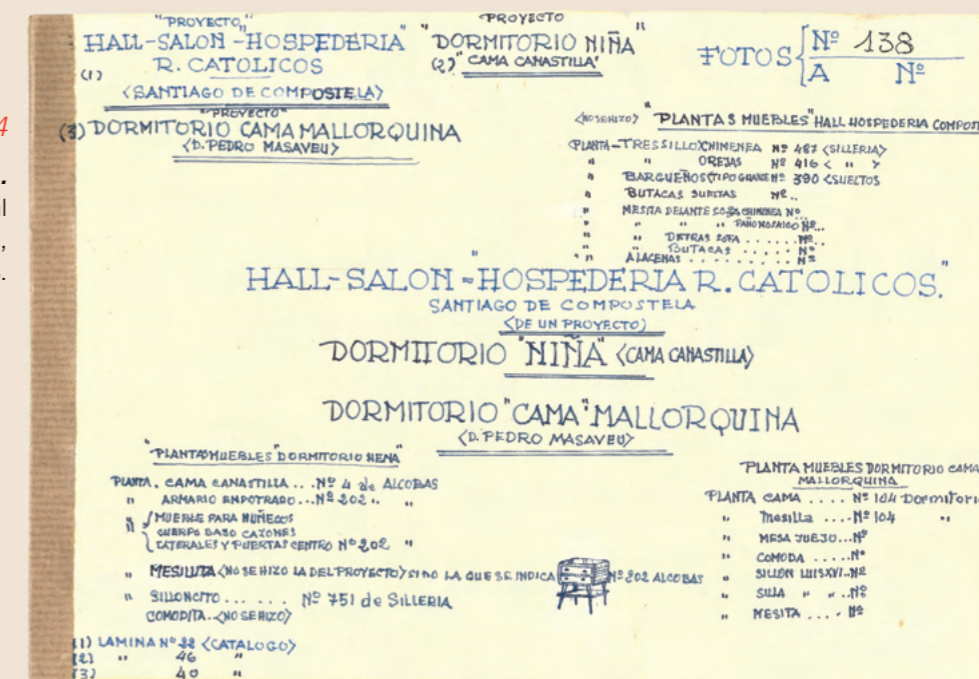 4
.
al
,
.
"PROYECTO"
HALL-SALON-"HOSPEDERIA"
R. CATOLICOS
(1)
<SANTIAGO DE COMPOSTELA>
"PROYECTO"
"DORMITORIO NIÑA"
(2) "CAMA CANASTILLA"
FOTOS { Nº 138
A Nº
"PROYECTO"
(3) DORMITORIO CAMA MALLORQUINA
<D. PEDRO MASAVEU>
<NO SE HIZO> "PLANTAS MUEBLES" HALL HOSPEDERIA COMPOST
PLANTA-TRESSILLO CHIMENEA Nº 487 <SILLERIA>
" " OREJAS Nº 416 < " >
" BARGUEÑOS (TIPO GRANDE Nº 390 <SUELTOS
" BUTACAS SUELTAS Nº..
" MESITA DELANTE SOFA CHIMENEA Nº...
" " " " PAÑO MOSAICO Nº...
" " DETRAS SOFA ...... Nº...
" " BUTACAS ...... Nº
" " ALACENAS ......... Nº
HALL-SALON-"HOSPEDERIA R. CATOLICOS."
SANTIAGO DE COMPOSTELA
<DE UN PROYECTO>
DORMITORIO "NIÑA" <CAMA CANASTILLA>
DORMITORIO "CAMA" MALLORQUINA
<D. PEDRO MASAVEU>
"PLANTAS MUEBLES" DORMITORIO NENA"
PLANTA. CAMA CANASTILLA ... Nº 4 de ALCOBAS
" ARMARIO EMPOTRADO ... Nº 202 " "
" { MUEBLE PARA MUÑECOS
" CUERPO BAJO CAJONES
LATERALES Y PUERTAS CENTRO Nº 202 "
" MESILLITA <NO SE HIZO LA DEL PROYECTO> SINO LA QUE SE INDICA Nº 202 ALCOBAS
" SILLONCITO ...... Nº 751 de SILLERIA
COMODITA..<NO SE HIZO>
PLANTA MUEBLES DORMITORIO CAMA
MALLORQUINA
PLANTA CAMA .... Nº 104 Dormitorio
" Mesilla .... Nº 104 "
" MESA JUEJO... Nº
" COMODA ..... Nº
" SILLON LUIS XVI.. Nº
" SILLA " " .. Nº
" MESITA .... Nº
(1) LAMINA Nº 38 <CATALOGO>
(2) " 46 "
(3) 40 "